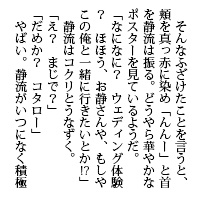 そんなふざけたことを言うと、
頬を真っ赤に染め「んんー」と首
を静流は振る。どうやら華やかな
ポスターを見ているようだ。
「なになに？　ウェディング体験
？　ほほう、お静さんや、もしや
この俺と一緒に行きたいとか⁉」
　静流はコクリとうなずく。
「え？　まじで？」
「だめか？　コタロー」
　やばい。静流がいつになく積極